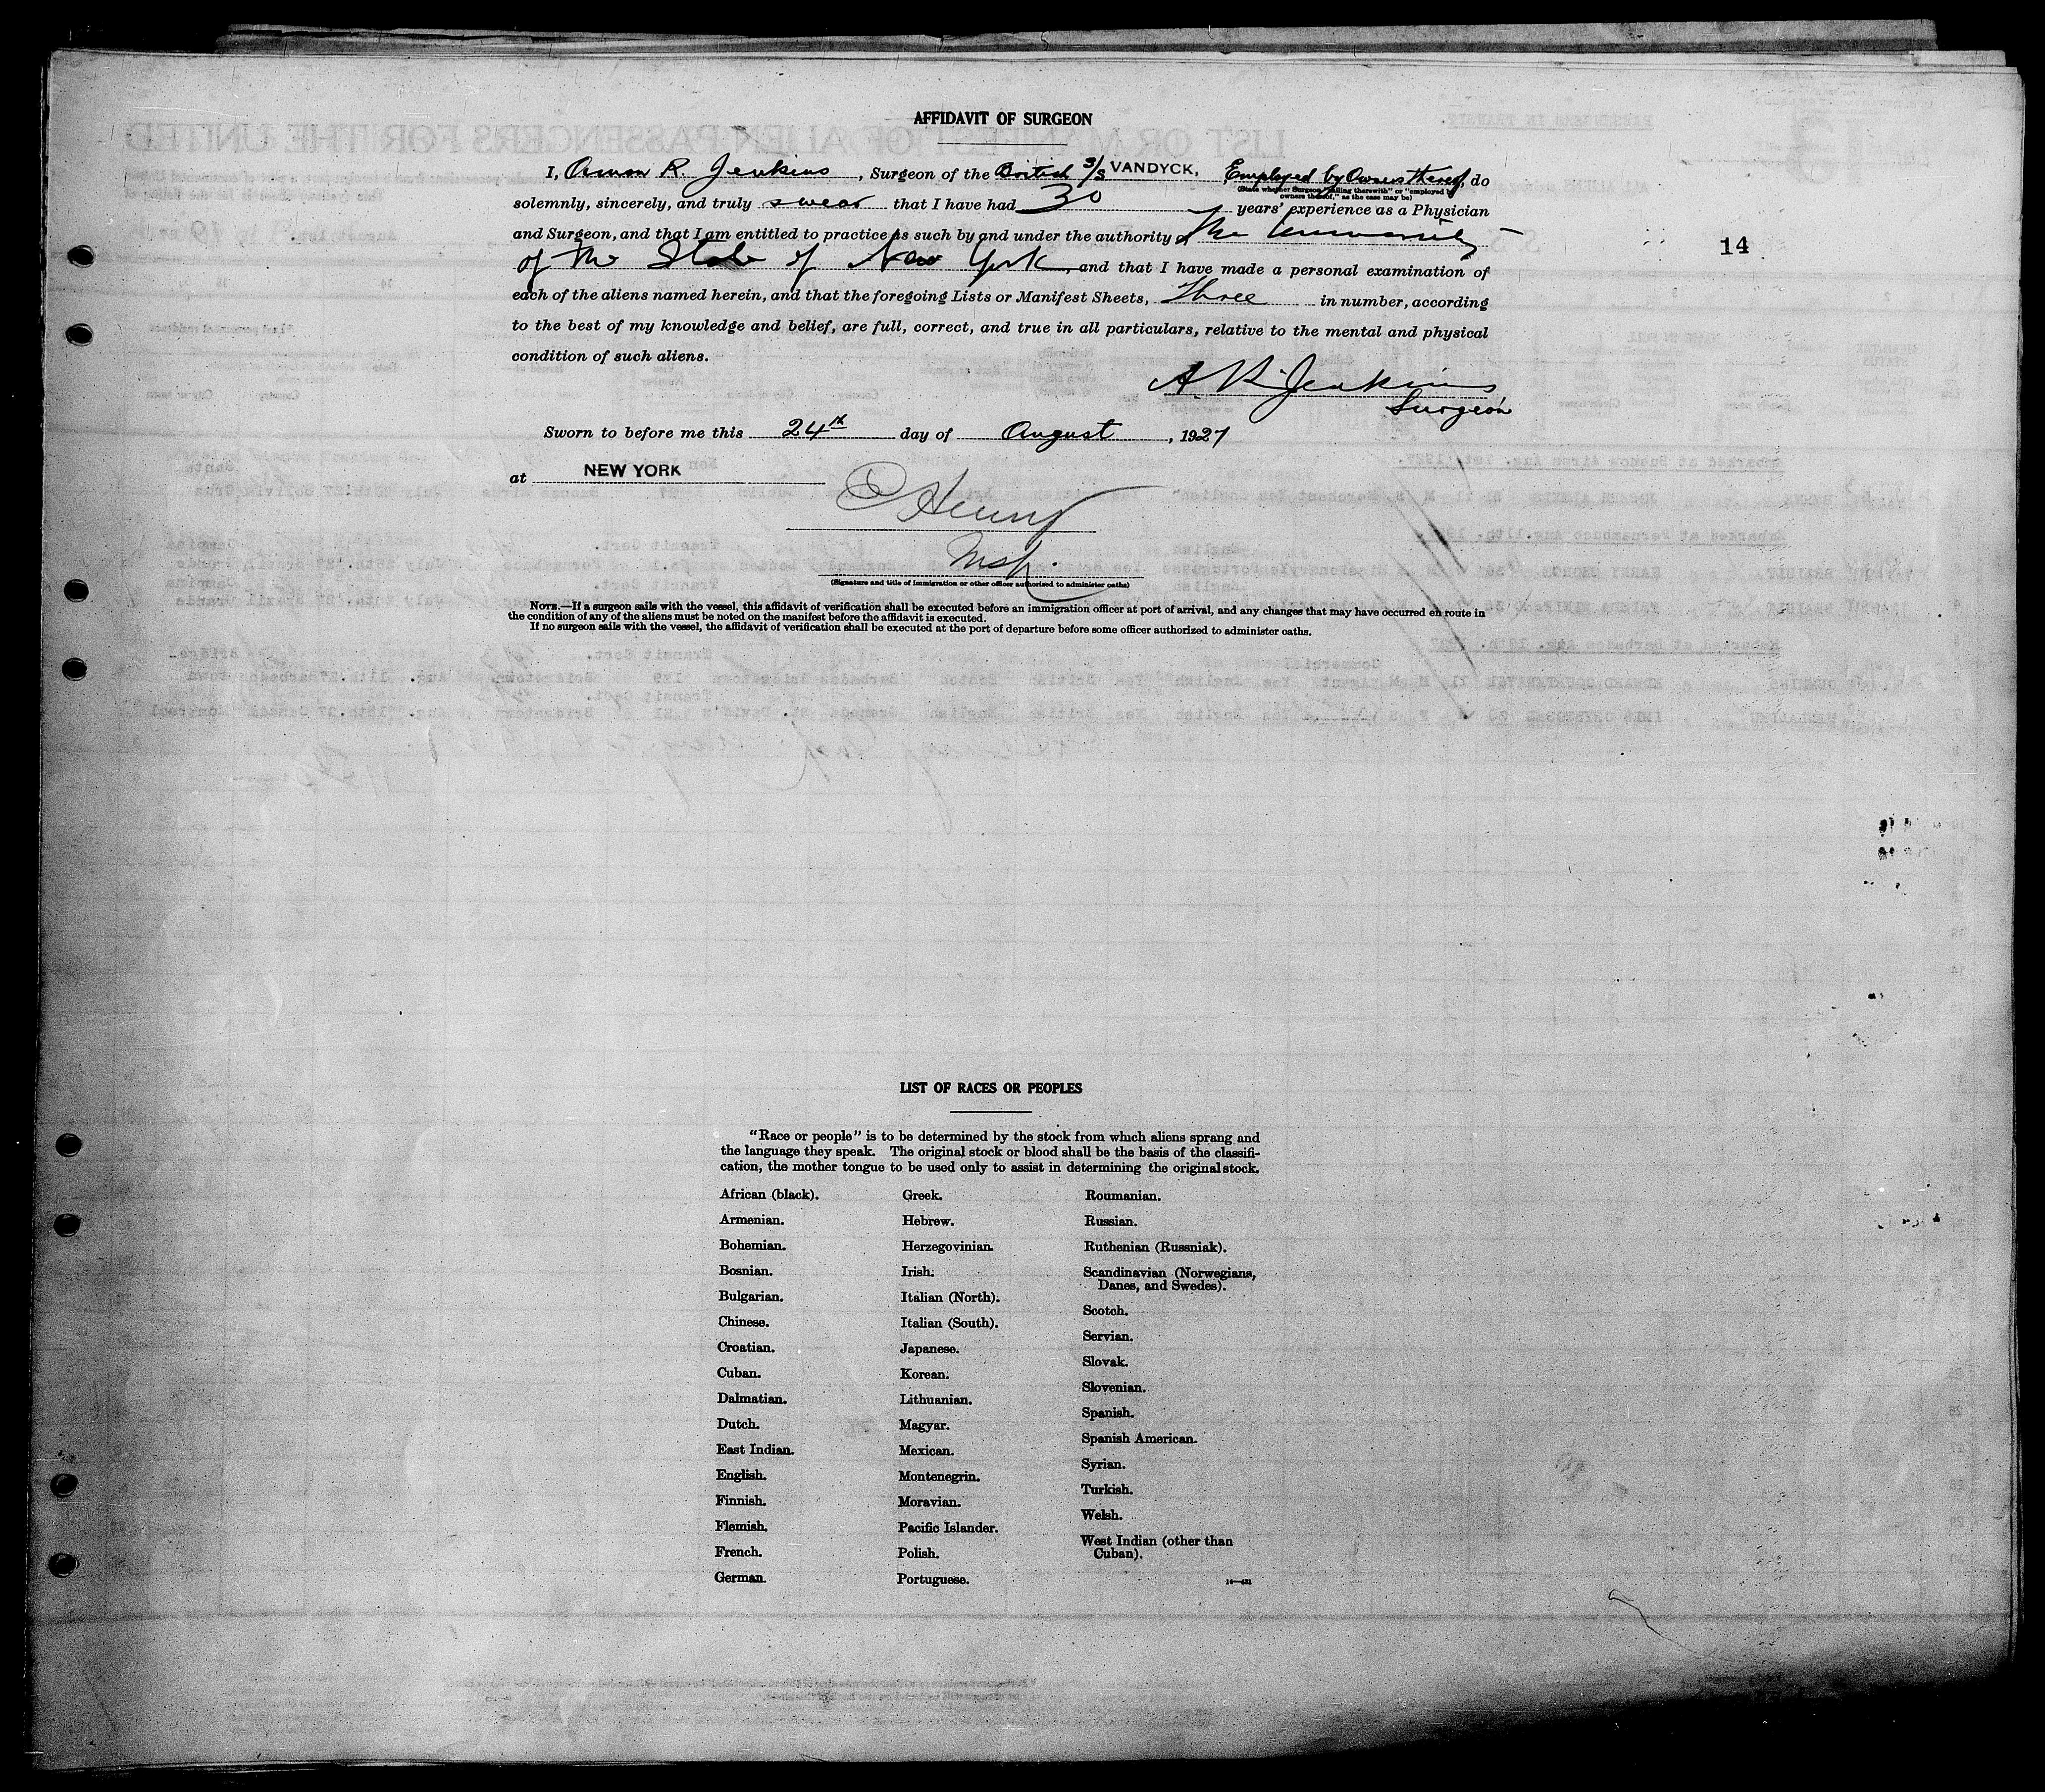 AFFIDAVIT OF SURGEON
I, R. Jenkins, Surgeon of the British S/S VANDYCK, Employed by Owners thereof, do
(State whether Surgeon "sailing therewith" or "employed by
owners thereof," as the case may be)
solemnly, sincerely, and truly swear that I have had 30 years' experience as a Physician
and Surgeon, and that I am entitled to practice as such by and under the authority of The University
of the State of New York, and that I have made a personal examination of
each of the aliens named herein, and that the foregoing Lists or Manifest Sheets, Three in number, according
to the best of my knowledge and belief, are full, correct, and true in all particulars, relative to the mental and physical
condition of such aliens.
A. R. Jenkins
Surgeon
14
Sworn to before me this 24th day of August, 1927
at NEW YORK
Henry
Insp.
(Signature and title of immigration or other officer authorized to administer oaths)
NOTE.—If a surgeon sails with the vessel, this affidavit of verification shall be executed before an immigration officer at port of arrival, and any changes that may have occurred en route in
the condition of any of the aliens must be noted on the manifest before the affidavit is executed.
If no surgeon sails with the vessel, the affidavit of verification shall be executed at the port of departure before some officer authorized to administer oaths.
LIST OF RACES OR PEOPLES
"Race or people" is to be determined by the stock from which aliens sprang and
the language they speak. The original stock or blood shall be the basis of the classifi-
cation, the mother tongue to be used only to assist in determining the original stock.
African (black).
Armenian.
Bohemian.
Bosnian.
Bulgarian.
Chinese.
Croatian.
Cuban.
Dalmatian.
Dutch.
East Indian.
English.
Finnish.
Flemish.
French.
German.
Greek.
Hebrew.
Herzegovinian.
Irish.
Italian (North).
Italian (South).
Japanese.
Korean.
Lithuanian.
Magyar.
Mexican.
Montenegrin.
Moravian.
Pacific Islander.
Polish.
Portuguese.
Roumanian.
Russian.
Ruthenian (Russniak).
Scandinavian (Norwegians,
Danes, and Swedes).
Scotch.
Servian.
Slovak.
Slovenian.
Spanish.
Spanish American.
Syrian.
Turkish.
Welsh.
West Indian (other than
Cuban).